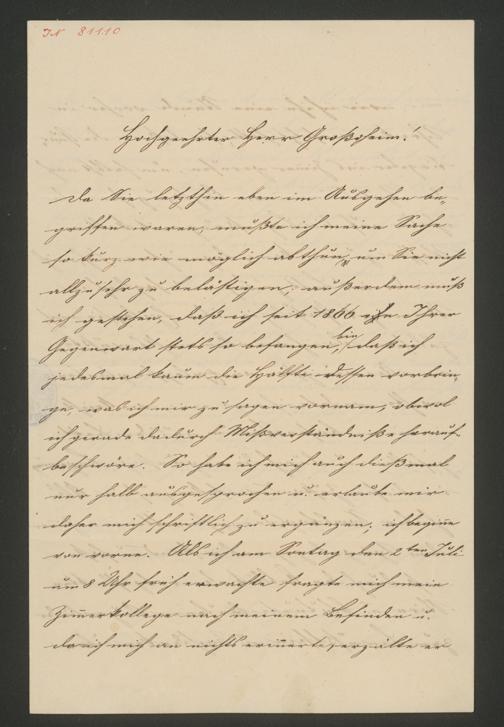 IN 81110
Hochgeehrter Herr Großheim!
Da Sie letzthin eben im Ausgehen be-
griffen waren, mußte ich meine Sache
so kurz wie möglich abthun, um Sie nicht
allzusehr zu belästigen; außerdem muß
ich gestehen, daß ich seit 1866 in Ihrer
Gegenwart stets so befangen bin, daß ich
jedesmal kaum die Hälfte dessen vorbrin-
ge, was ich mir zu sagen vornam, obwol
ich gerade dadurch Mißverständniße herauf-
beschwöre. So habe ich mich auch dießmal
nur halb ausgesprochen u. erlaube mir
daher mich schriftlich zu ergänzen; ich beginne
von vorne. Als ich am Sontag den 2ten Juli
um 8 Uhr früh erwachte fragte mich mein
Zimmerkollege nach meinem Befinden u.
da ich mich an nichts erinnerte, erzälte er